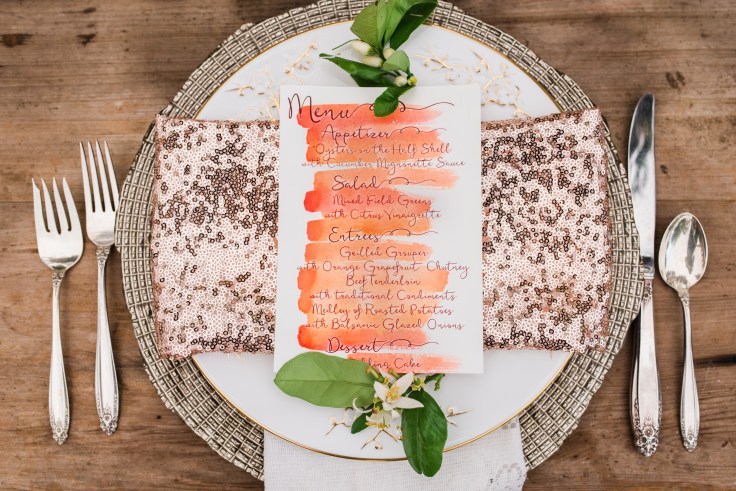 Menu
Appetizer
Oysters on the Half Shell
with Cucumber Mignonette Sauce
Salad
Mixed Field Greens
with Citrus Vinaigrette
Entrees
Grilled Grouper
with Orange Grapefruit Chutney
Beef Tenderloin
with traditional Condiments
Medley of Roasted Potatoes
with Balsamic Glazed Onions
Dessert
Cake